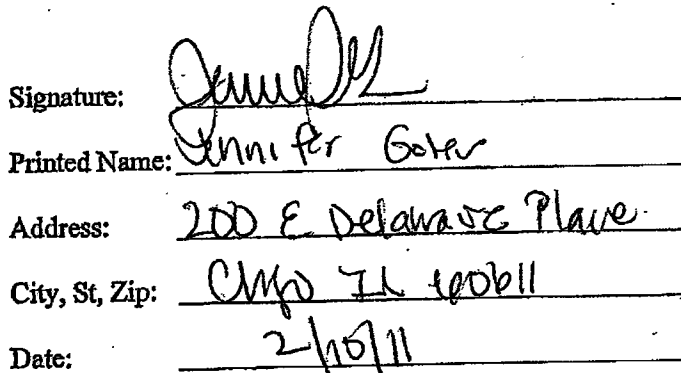 Signature:
Printed Name: Jennifer
Address: 200 E Delaware Place
City, St, Zip: Chgo IL 60611
Date: 2/10/11